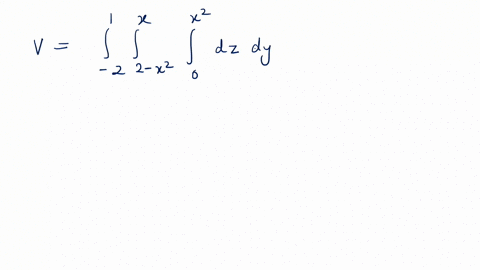 V = ∫_{-2}^{1} ∫_{2-x²}^{x} ∫_{0}^{x²} dz dy